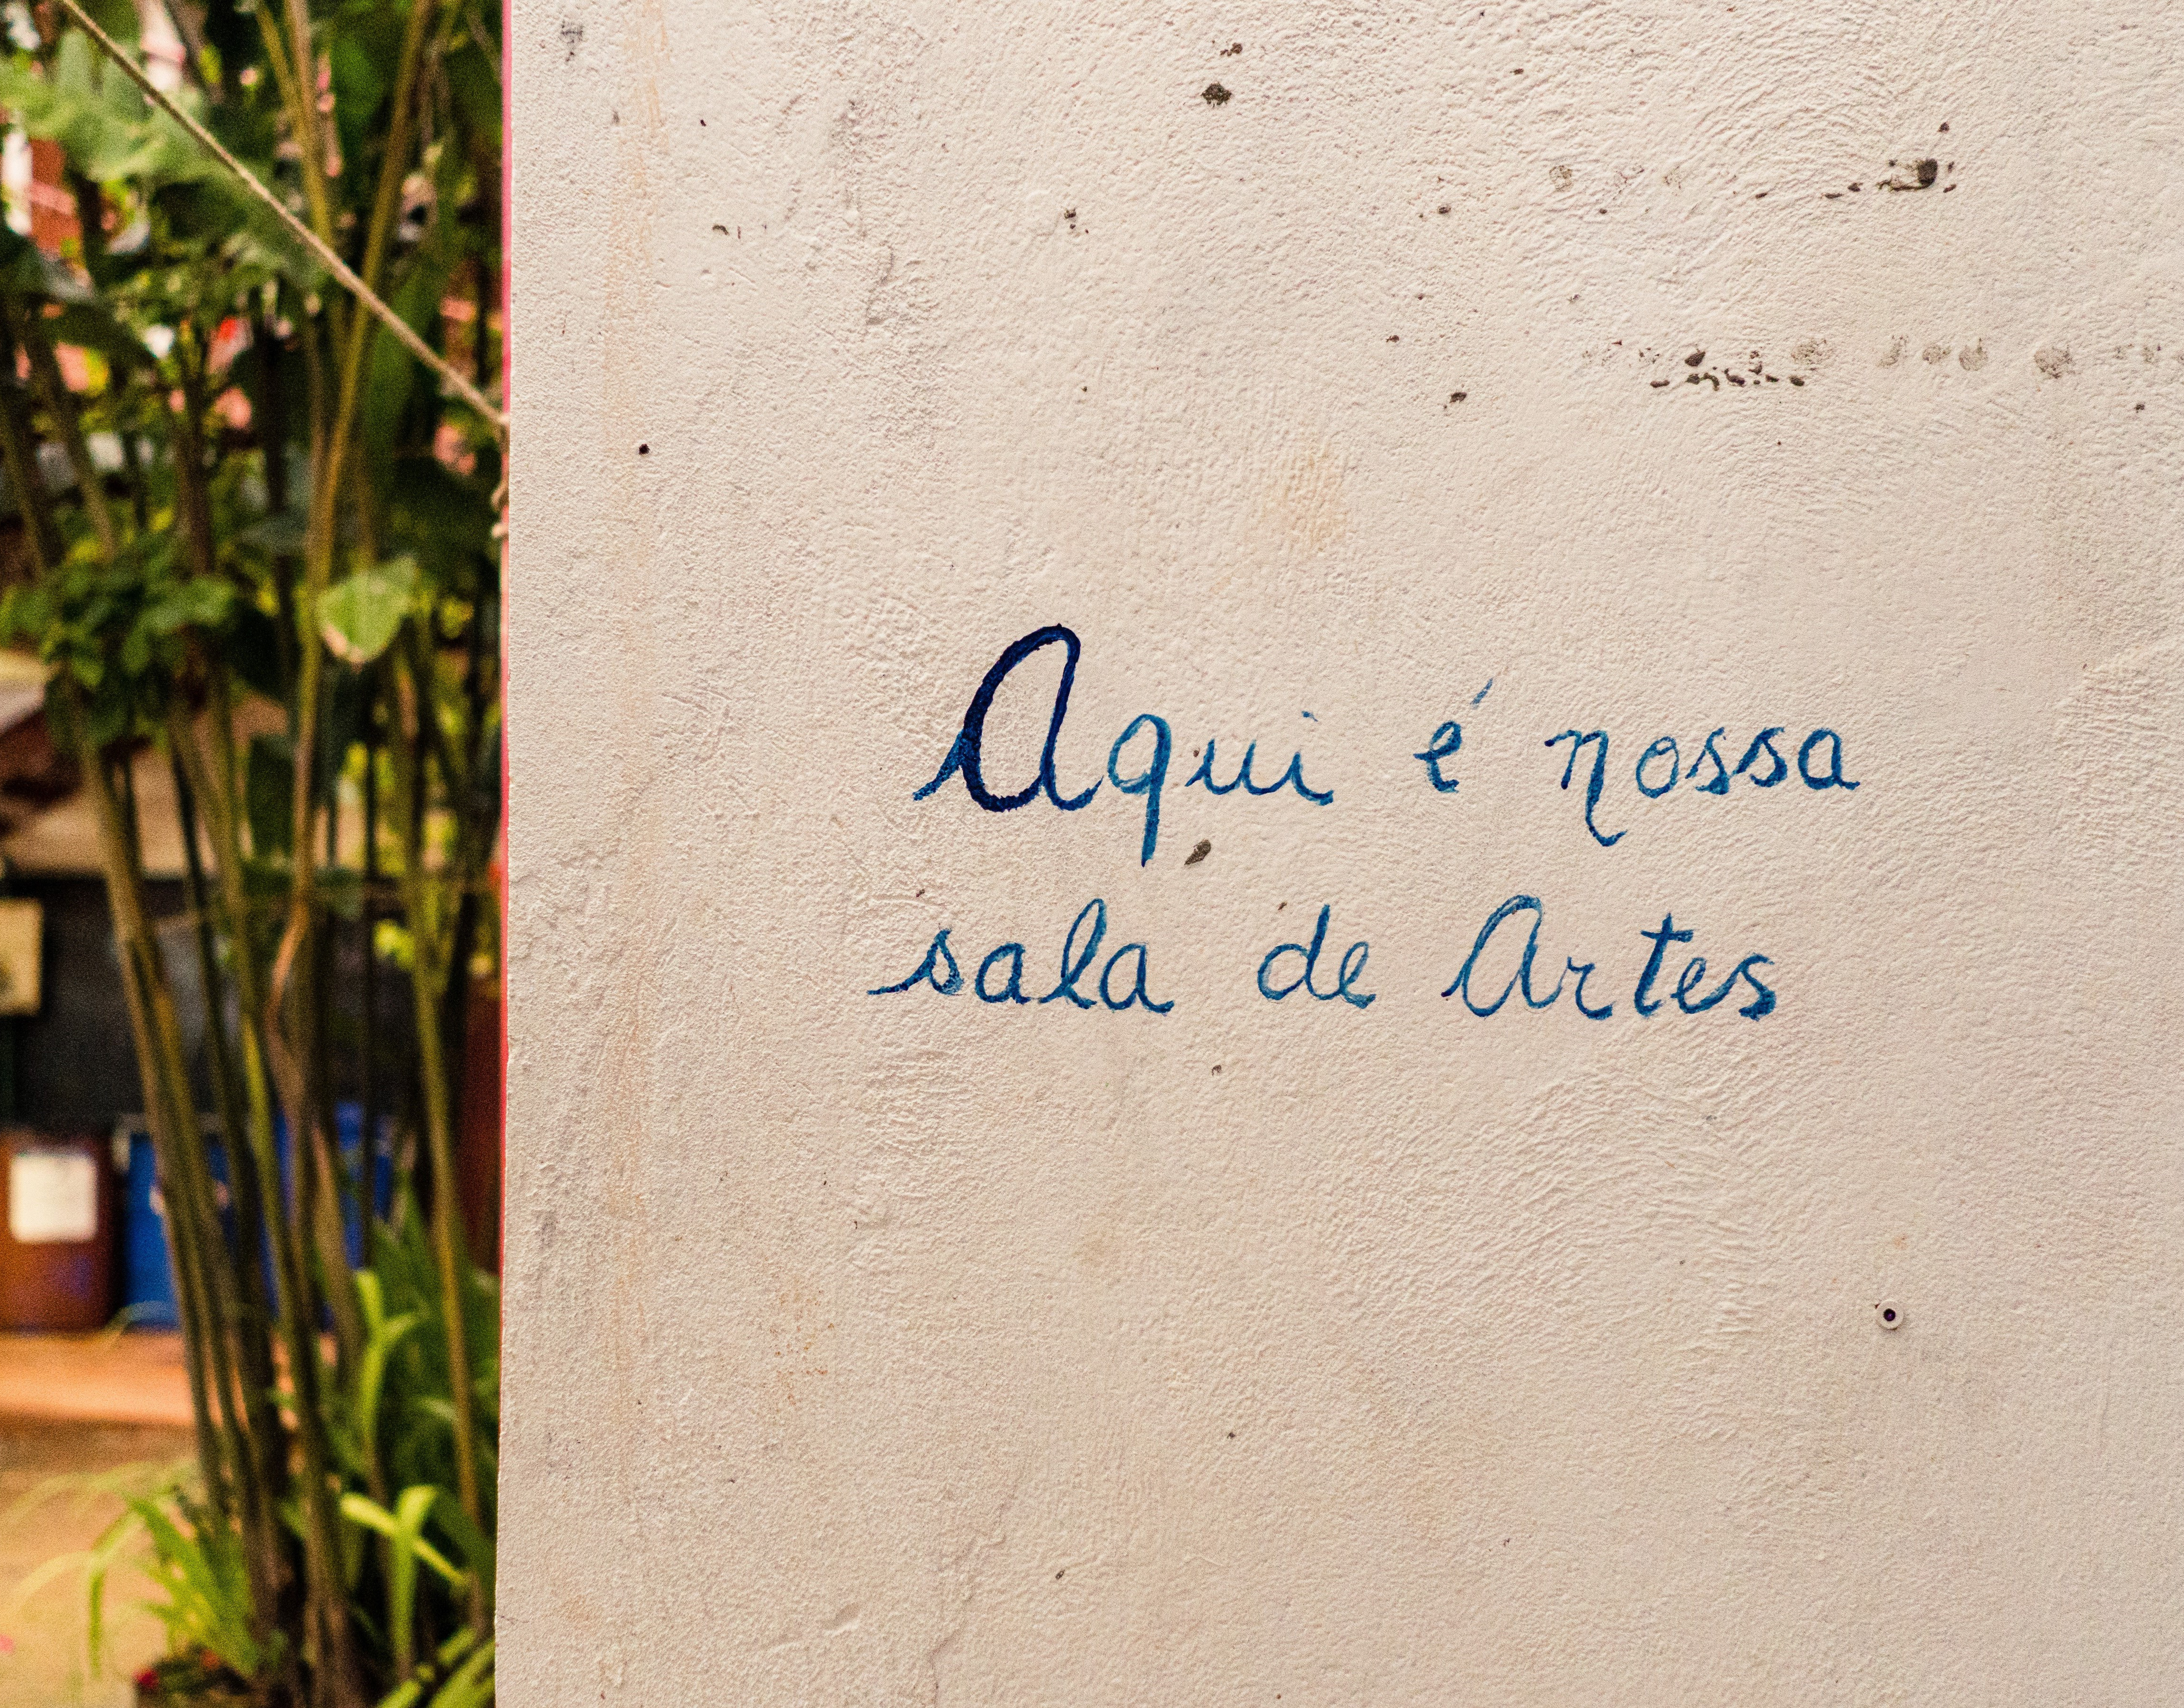 Aqui é nossa
sala de Artes